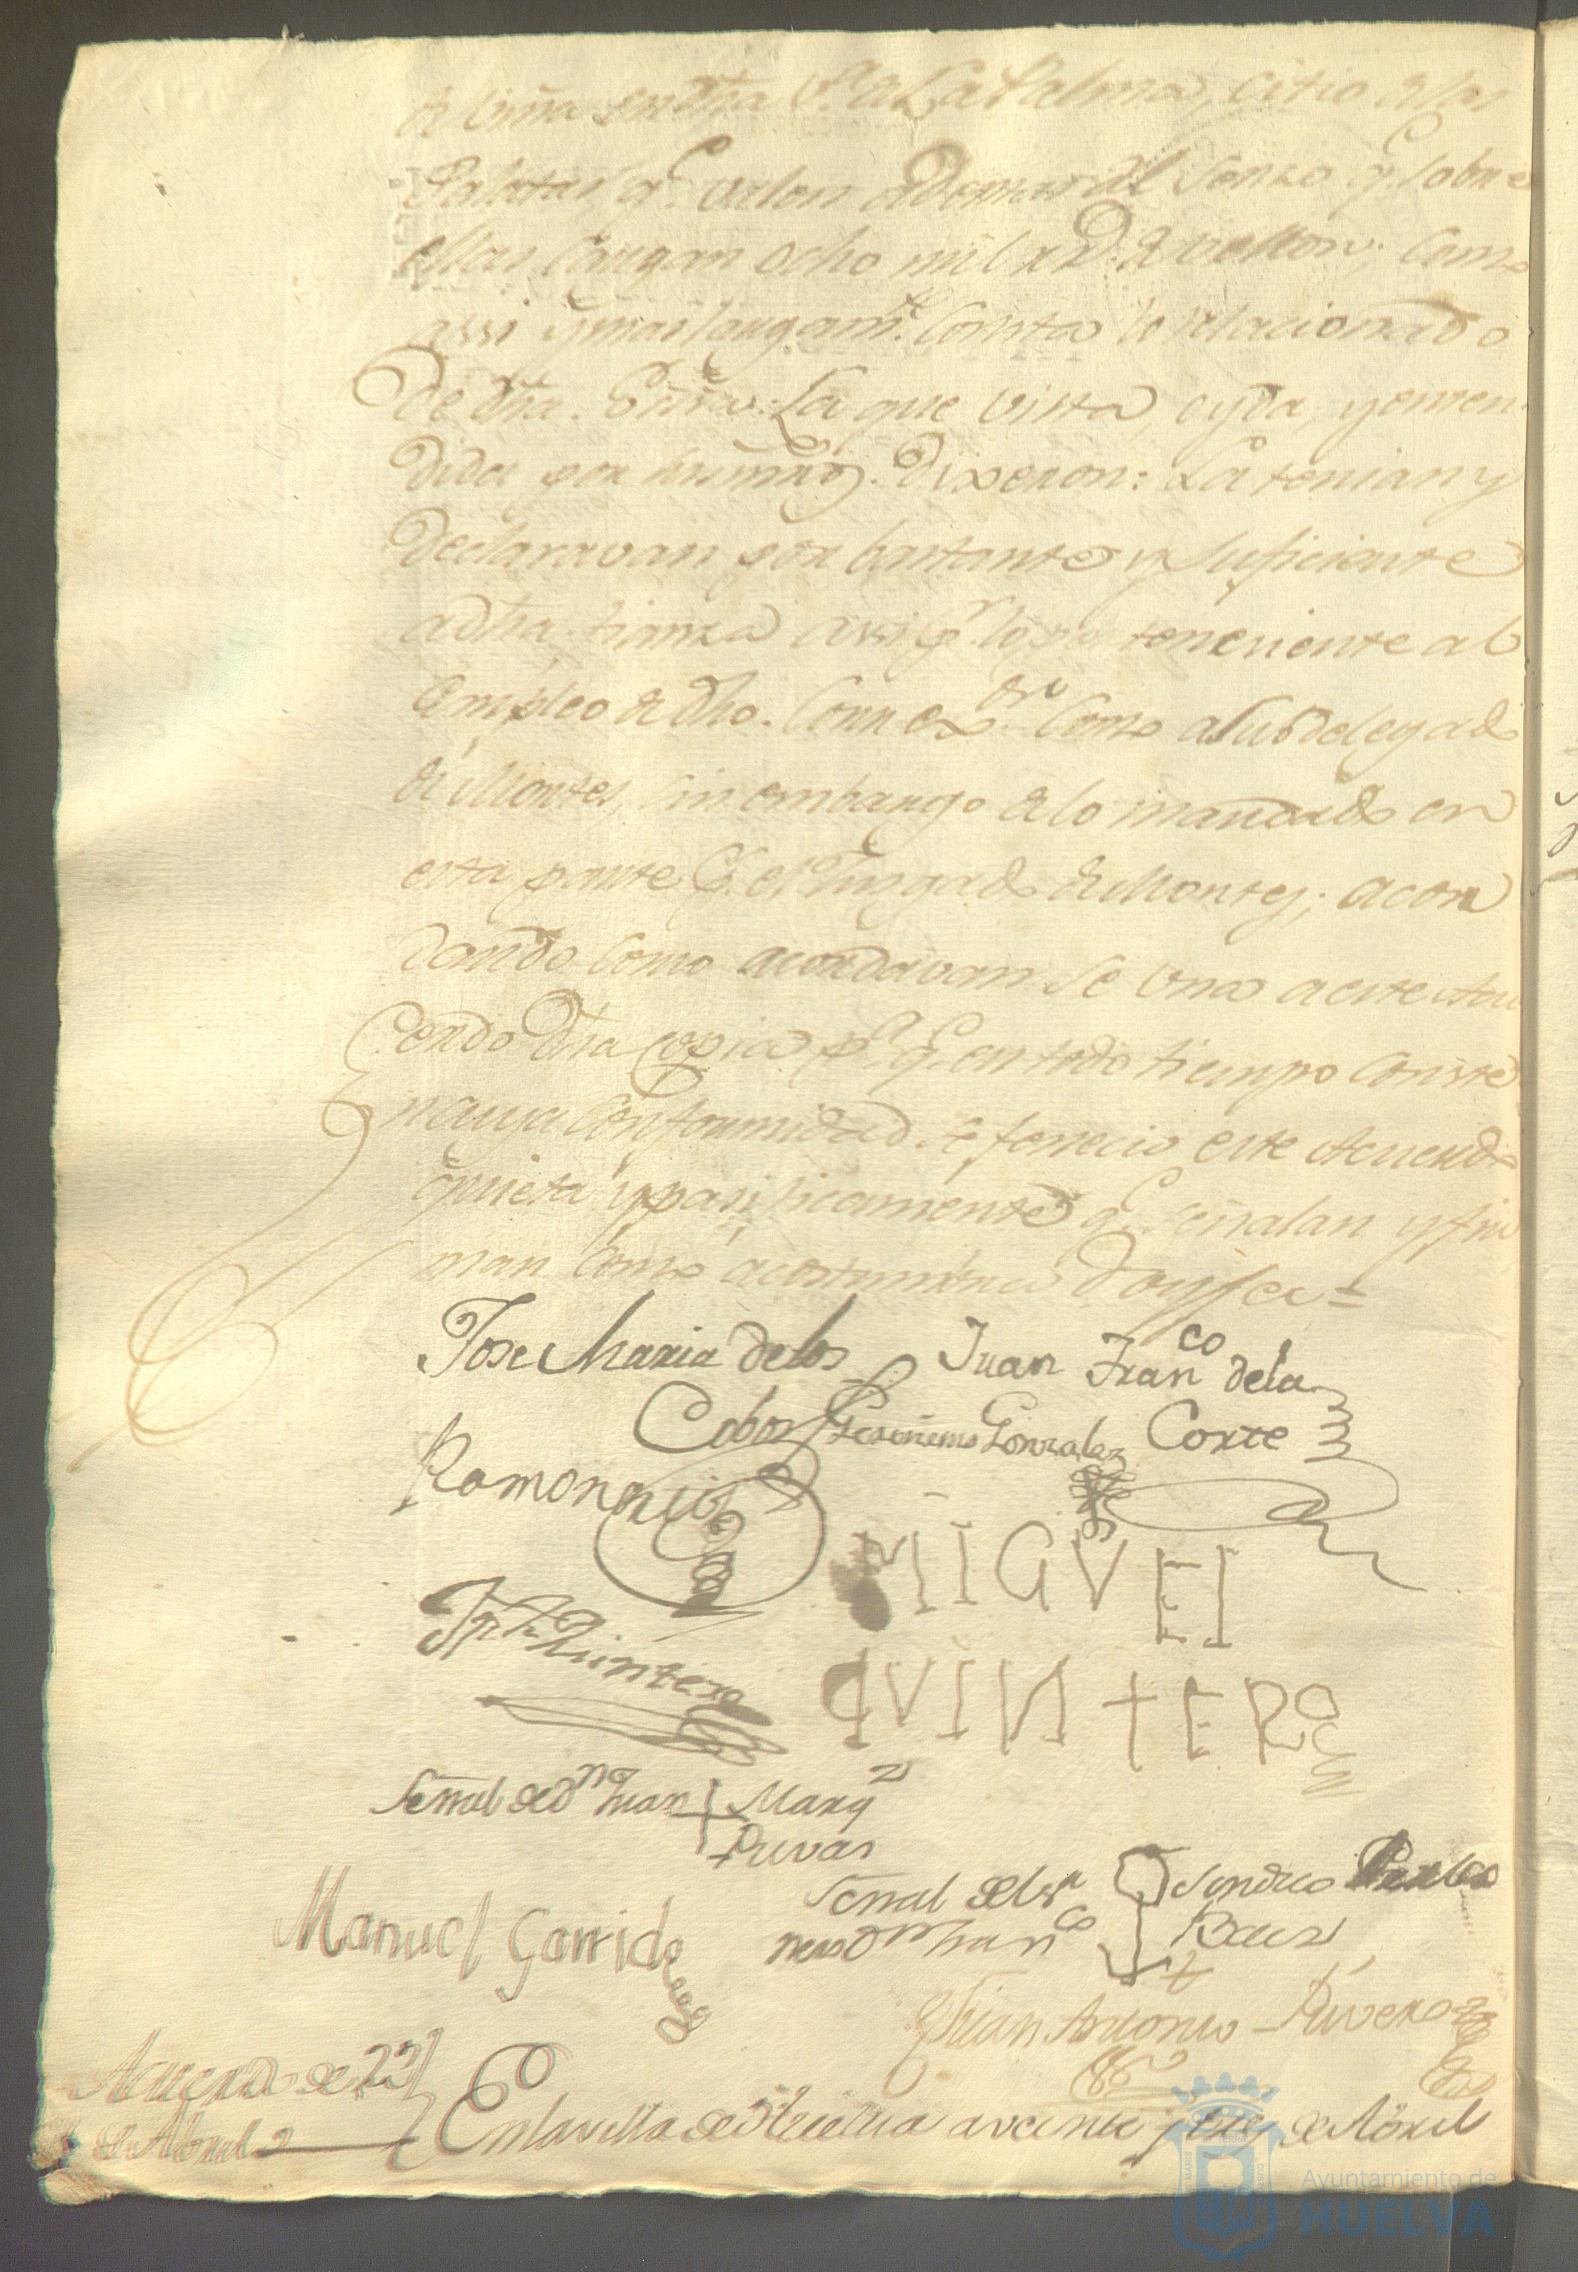 de viña en dha Va. de La Palma, citio de las
qe. valen ademas del Senso qe. sobre
ellas cargan ocho mil rs. de vellon; como
assi y mas largamte. consta lo relacionado
de dha. Essra. La que vista, oyda, y enten
dida por sus mrds. Dixeron: La tenian y
declaravan por bastante y suficiente
a dha. fianza assi pr. lo perteneciente al
empleo de dho. Correxor. como a Subdelegado
de Montes, sin embargo de lo mandado en
esta parte pr. el Juzgado de Montes; acor
dando como acordavan se una a este Acu
erdo dha copia pa. qe. en todo tiempo conste
En cuya conformidad se fenecio este Acuerdo
quieta y pasificamente qe. señalan y fir
man como acostumbran doy fee =
Jose Maria de los Juan Franco dela
Cobos Geronimo Gonzalez Corte
Ramon
MIGVEl
Quintero
QVINTERO
Señal de Dn Juan + Marqz
Rivas
Señal del Sindico
Manuel Garrido Baez
Juan Antonio Rivero
Acuerdo de 23
de Abril En la villa de Huelva a veinte y tres de Abril
Ayuntamiento de
HUELVA